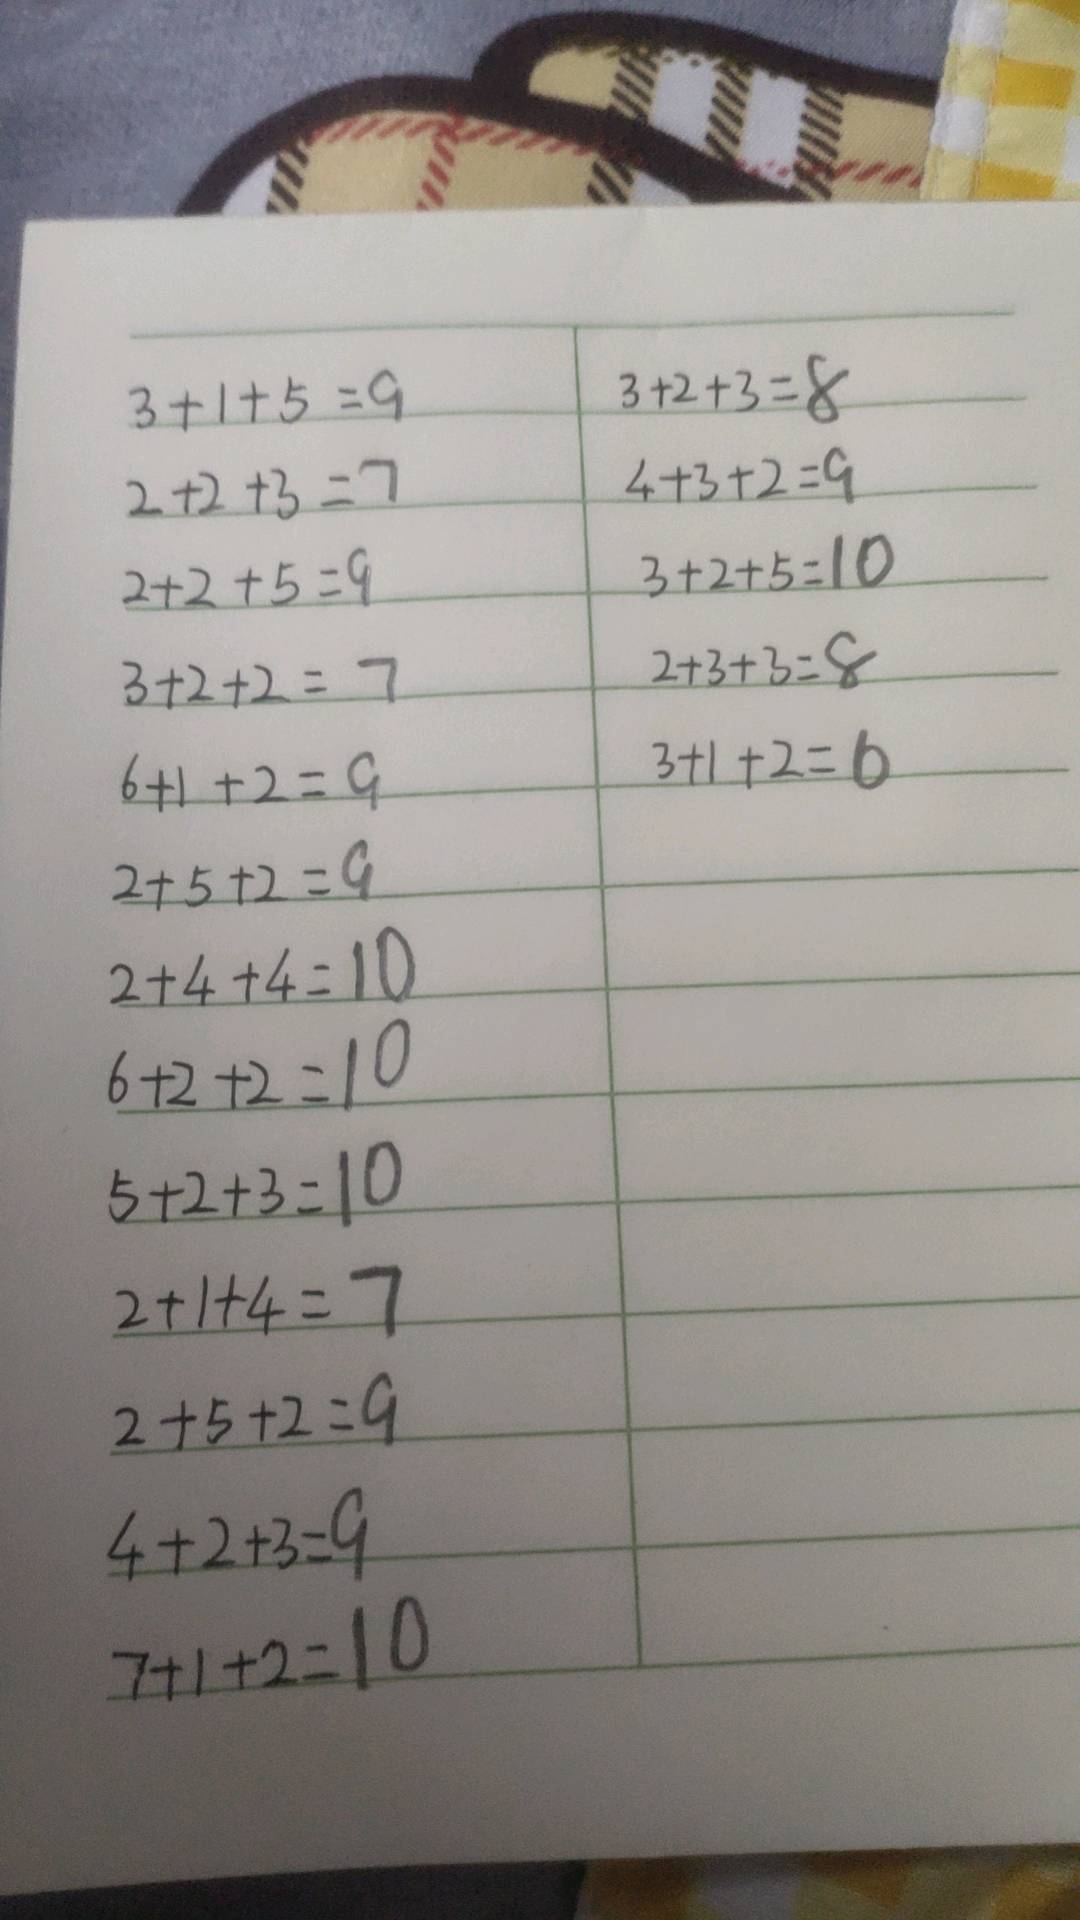 3+1+5=9
2+2+3=7
2+2+5=9
3+2+2=7
6+1+2=9
2+5+2=9
2+4+4=10
6+2+2=10
5+2+3=10
2+1+4=7
2+5+2=9
4+2+3=9
7+1+2=10
3+2+3=8
4+3+2=9
3+2+5=10
2+3+3=8
3+1+2=6